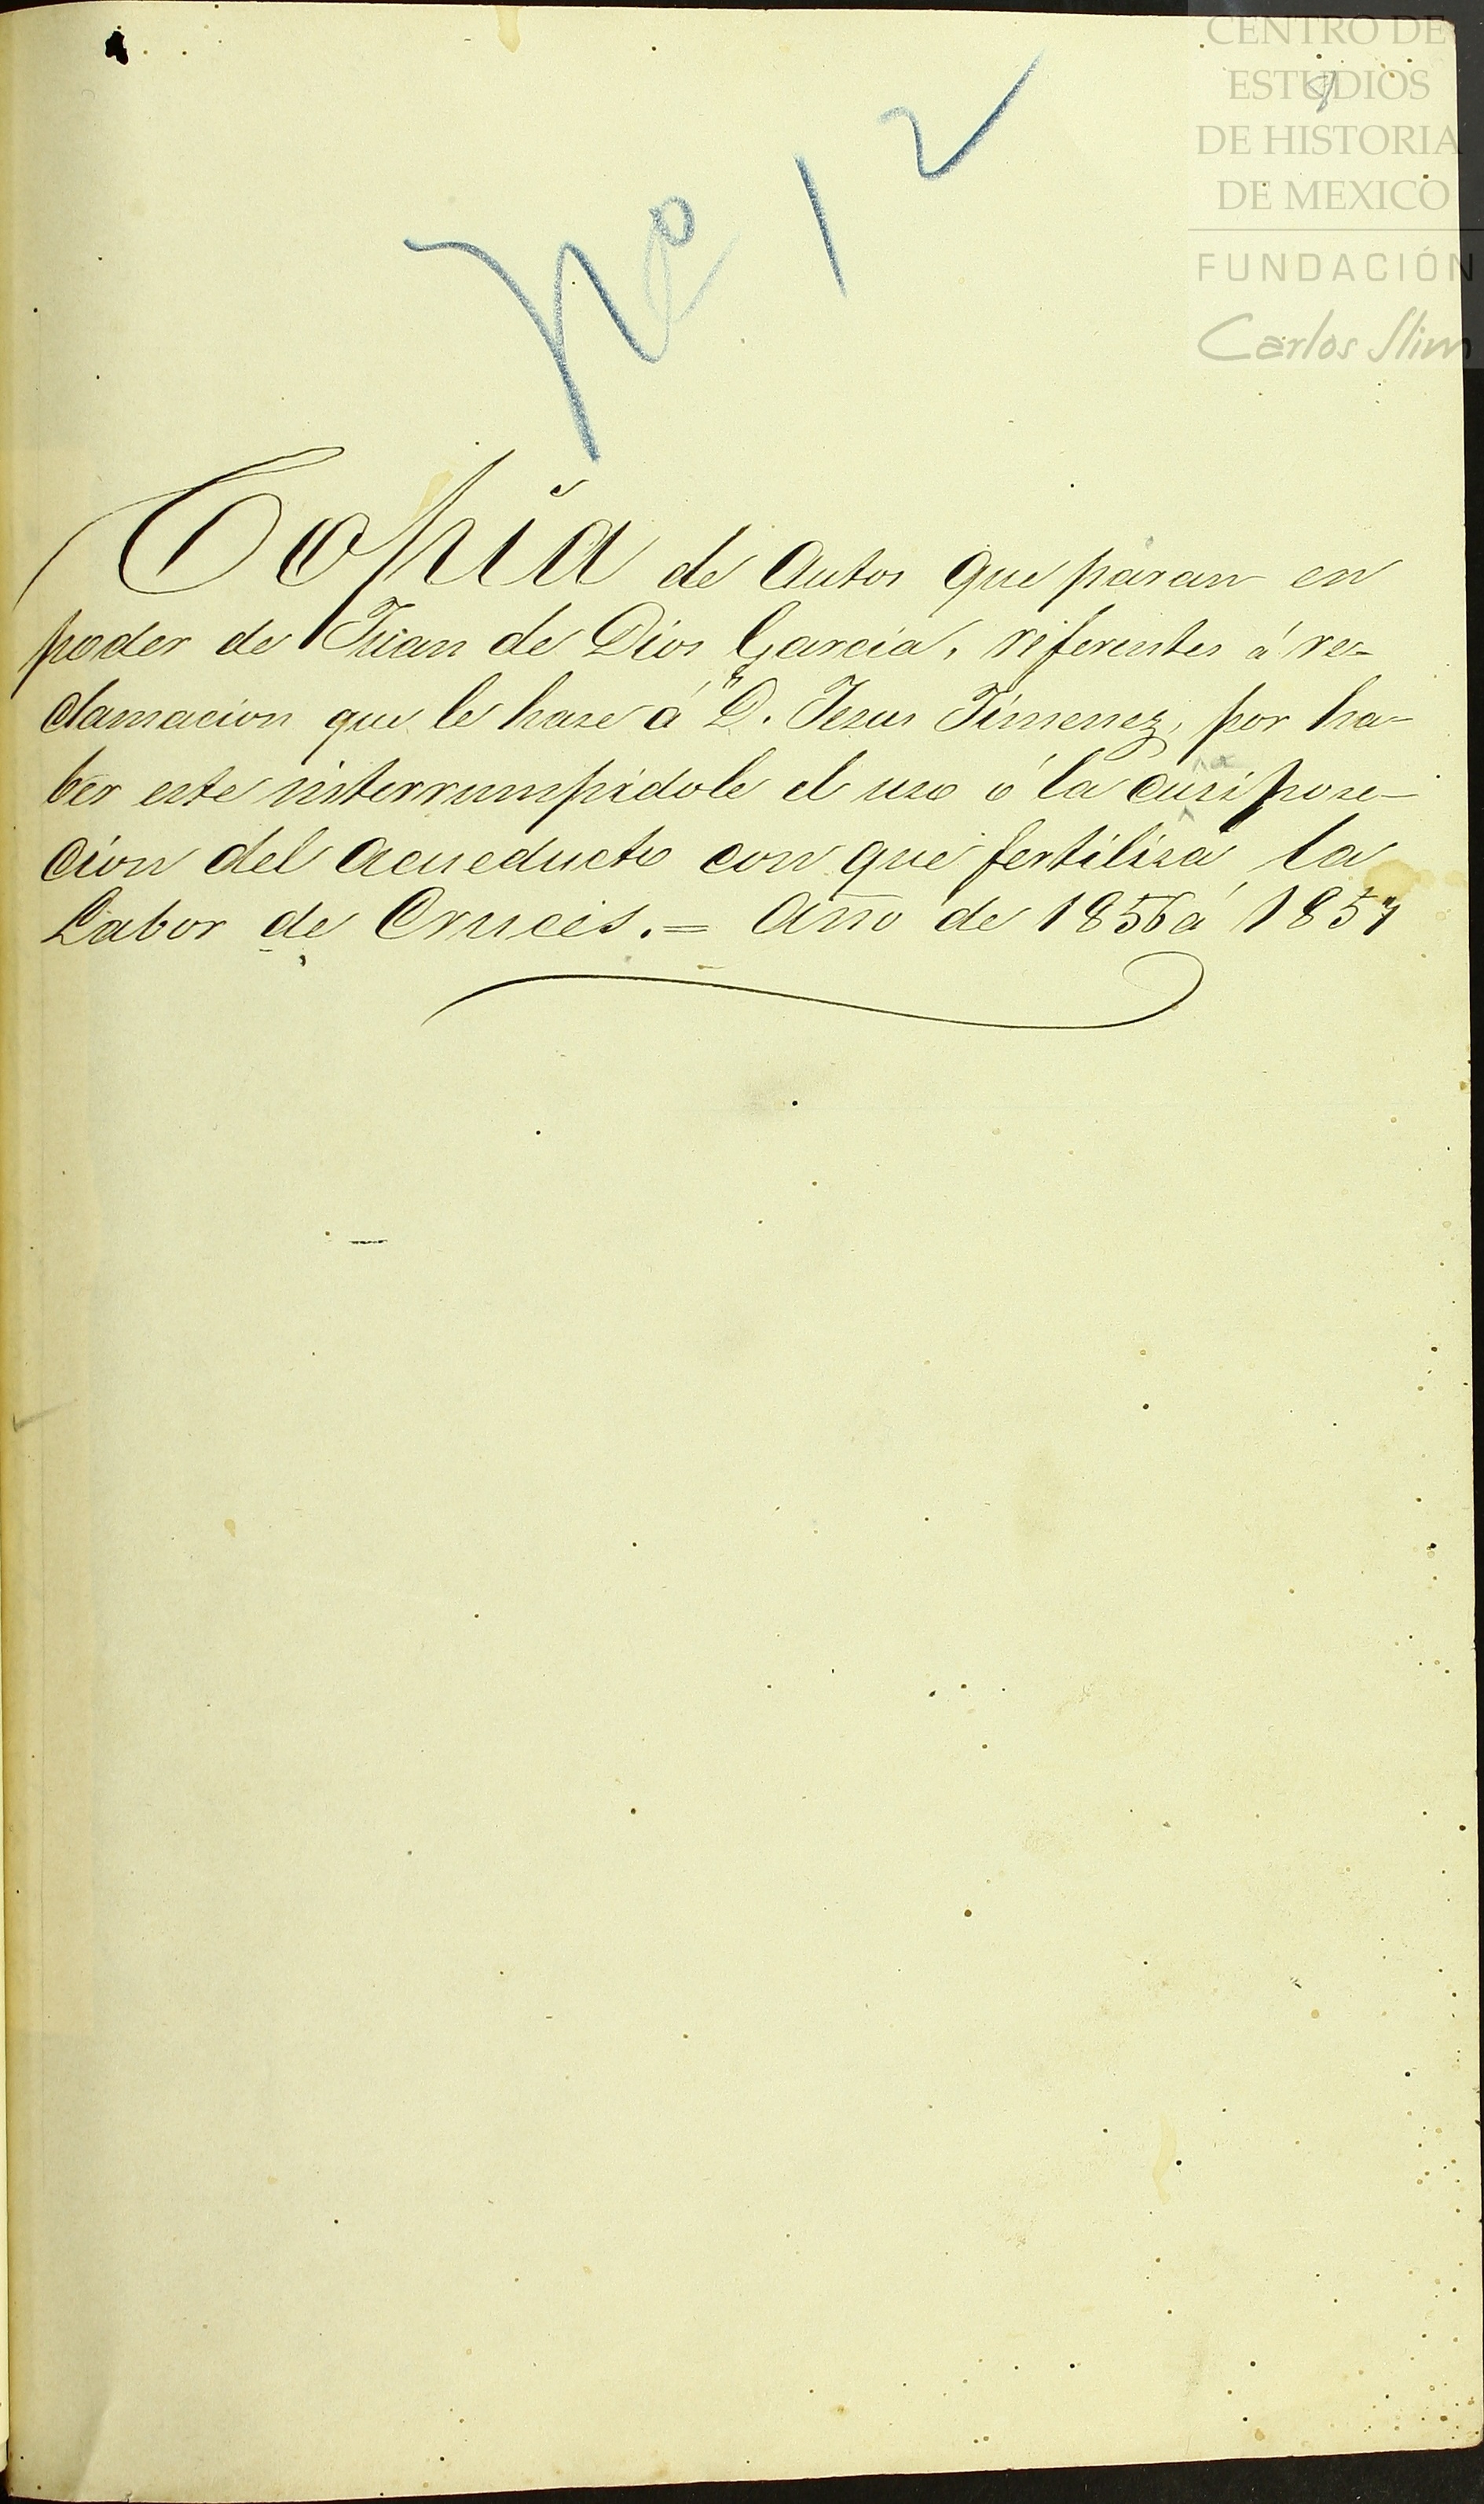 CENTRO DE
ESTUDIOS
DE HISTORIA
DE MEXICO
FUNDACIÓN
Carlos Slim
No 12
Copia de Autos que paran en
poder de Juan de Dios Garcia, referentes á re-
clamacion que le hase á D. Jesus Jimenez, por ha-
ber este interrumpidole el uso ó la cusi pose-
cion del acueducto con que fertilisa la
Labor de Cruces.= Año de 1856 á 1857